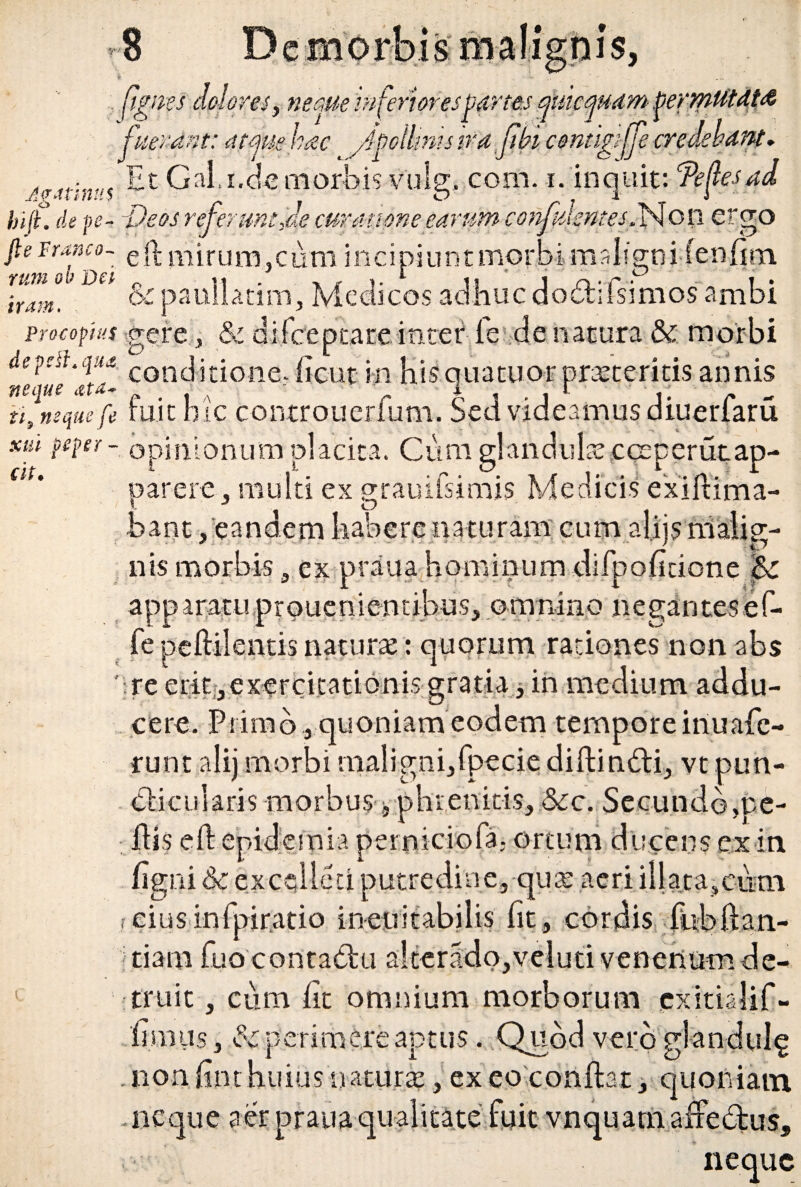 8 De morbis malignis,
ſignes dolores, neque inferiores partes quicquam permutatæ
fuerant: atque hæc Apollinis ira ſibi contigiſſe credebant.
Et Gal. 1. de morbis vulg. com. 1. inquit: Peſtes ad
Deos referunt, de curatione earum conſulentes. Non ergo
eſt mirum, cùm incipiunt morbi maligni ſenſim
& paullatim, Medicos adhuc doctiſsimos ambi
gere, & diſceptare inter ſe de natura & morbi
conditione, ſicut in his quatuor præteritis annis
fuit hîc controuerſum. Sed videamus diuerſarū
opinionum placita. Cùm glandulæ cœperūt ap-
parere, multi ex grauiſsimis Medicis exiſtima-
bant, eandem habere naturam cum alijs malig-
nis morbis, ex praua hominum diſpoſitione &
apparatu prouenientibus, omnino negantes eſ-
ſe peſtilentis naturæ: quorum rationes non abs
re erit, exercitationis gratia, in medium addu-
cere. Primò, quoniam eodem tempore inuaſe-
runt alij morbi maligni, ſpecie diſtincti, vt pun-
cticularis morbus, phrenitis, &c. Secundò, pe-
ſtis eſt epidemia pernicioſa, ortum ducens ex in
ſigni & excellēti putredine, quæ aeri illata, cùm
eius inſpiratio ineuitabilis ſit, cordis ſubſtan-
tiam ſuo contactu alterādo, veluti venenum de-
truit, cùm ſit omnium morborum exitialiſ-
ſimus, & perimere aptus. Quòd verò glandulę
non ſint huius naturæ, ex eo conſtat, quoniam
neque aër praua qualitate fuit vnquam affectus,
neque
Agatinus
hiſt. de pe-
ſte Franco-
rum ob Dei
iram.
Procopius
de peſt. quæ
neque æta-
ti, neque ſe
xui peper-
cit.